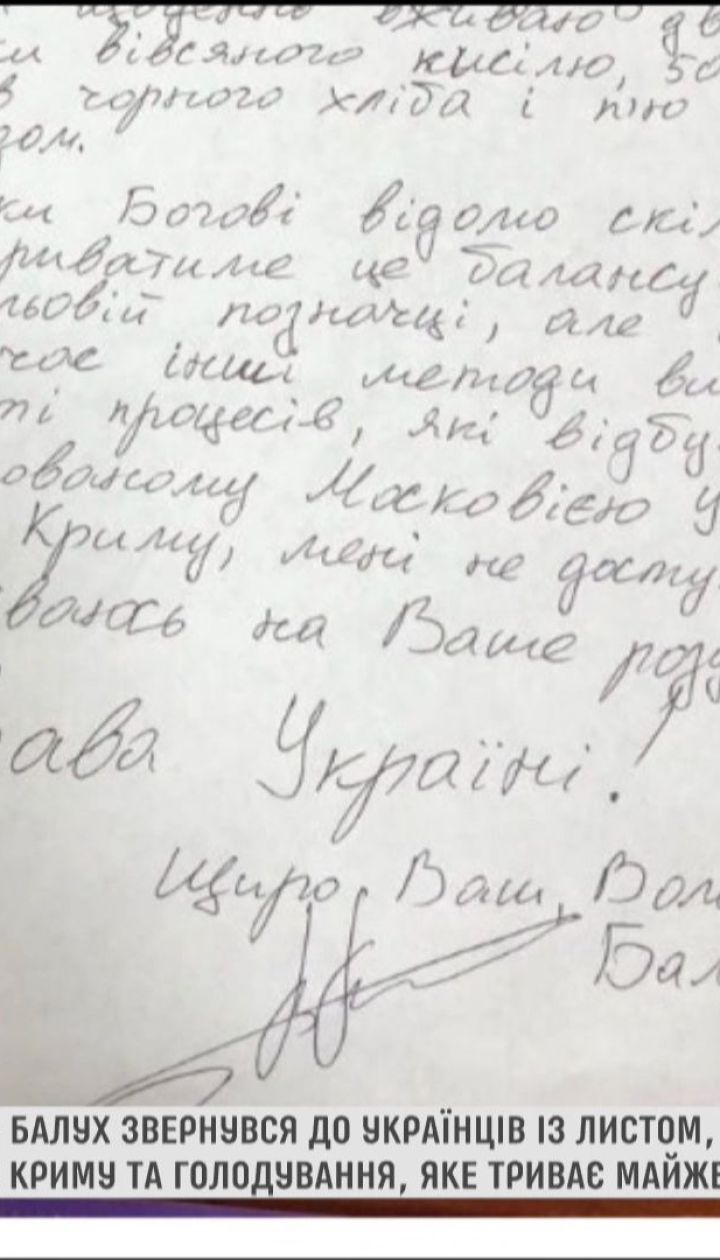 щоденно вживаю дв
ки вівсяного кисілю, 50
в чорного хліба і п'ю
зом.
ки Богові відомо скіл
риватиме це балансу
льовій позначці, але
час інші методи ви
ті процесів, які відбу
ованому Московією У
Криму, мені не досту
ваюсь на Ваше розу
ава Україні!
Щиро Ваш, Вол
Бал
БАЛУХ ЗВЕРНУВСЯ ДО УКРАЇНЦІВ ІЗ ЛИСТОМ,
КРИМУ ТА ГОЛОДУВАННЯ, ЯКЕ ТРИВАЄ МАЙЖЕ